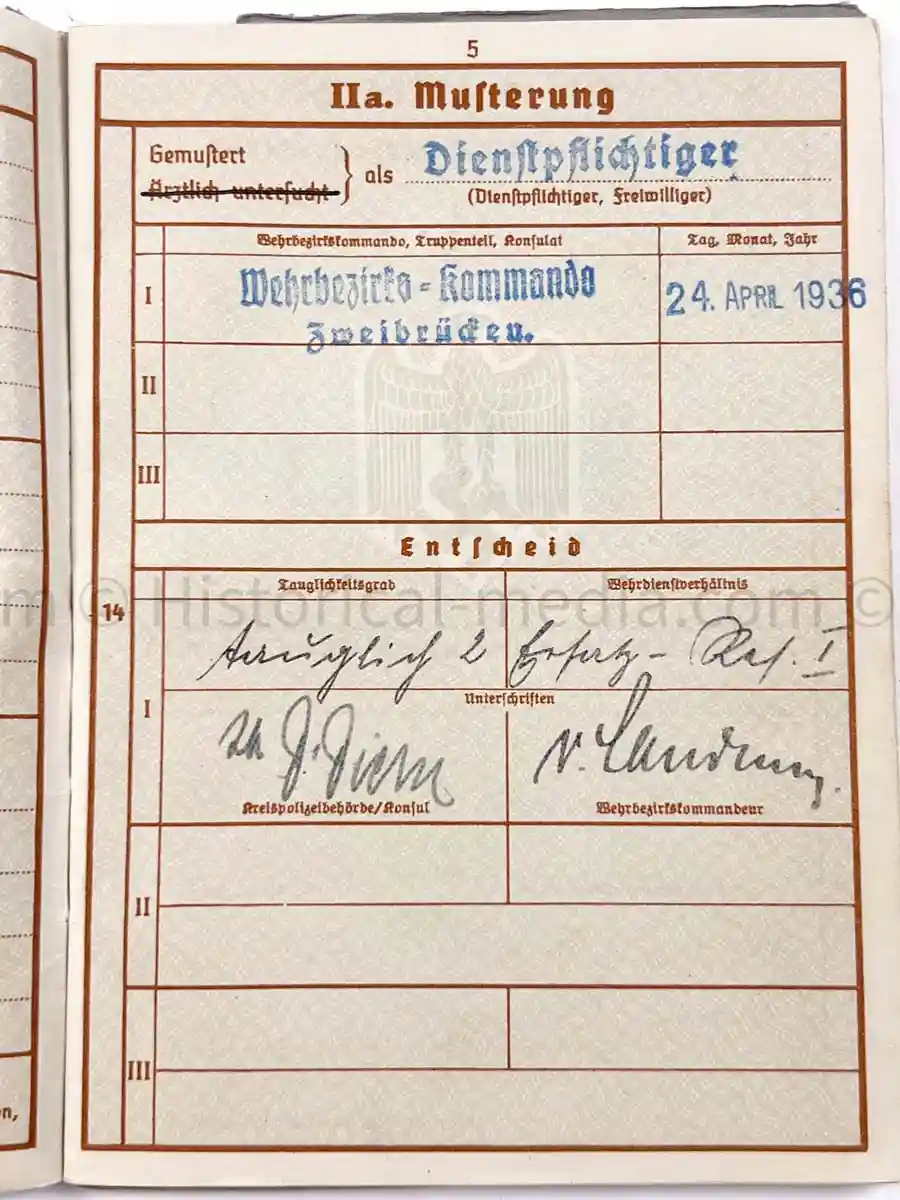 5
IIa. Musterung
Gemustert
Ärztlich untersucht
} als Dienstpflichtiger
(Dienstpflichtiger, Freiwilliger)
Wehrbezirkskommando, Truppenteil, Konsulat Tag, Monat, Jahr
I Wehrbezirks-Kommando 24. APRIL 1936
Zweibrücken.
II
III
Entscheid
Tauglichkeitsgrad Wehrdienstverhältnis
m © Historical-media.com ©
14
tauglich 2 Ersatz-Res. I
I Unterschriften
v.
Kreispolizeibehörde/Konsul Wehrbezirkskommandeur
II
III
en,